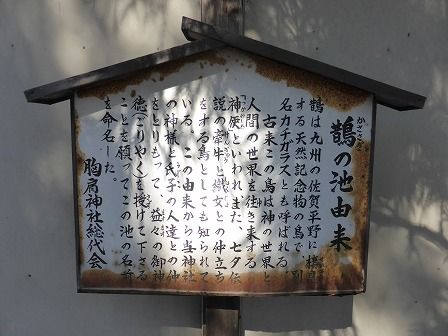 鵲の池由来
かささぎ
鵲は九州の佐賀平野に棲息
する天然記念物の鳥で、別
名カチガラスとも呼ばれる。
古来この鳥は神の世界と
人間の世界を往き来する
神使といわれ、また、七夕伝
説の牽牛と織女との仲立ち
をする鳥としても知られて
いる。この由来から当神社
の神様と氏子の人達との仲
をとりもって、益々の御神
徳(ごりやく)を授けて下さる
ことを願ってこの池の名前
を命名した。
胸肩神社総代会